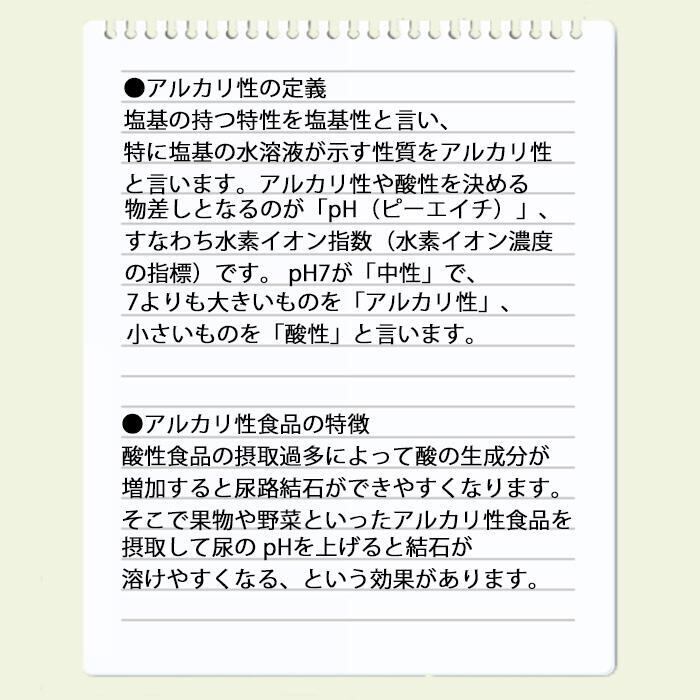 ●アルカリ性の定義
塩基の持つ特性を塩基性と言い、
特に塩基の水溶液が示す性質をアルカリ性
と言います。アルカリ性や酸性を決める
物差しとなるのが「pH（ピーエイチ）」、
すなわち水素イオン指数（水素イオン濃度
の指標）です。pH7が「中性」で、
7よりも大きいものを「アルカリ性」、
小さいものを「酸性」と言います。
●アルカリ性食品の特徴
酸性食品の摂取過多によって酸の生成分が
増加すると尿路結石ができやすくなります。
そこで果物や野菜といったアルカリ性食品を
摂取して尿の pHを上げると結石が
溶けやすくなる、という効果があります。